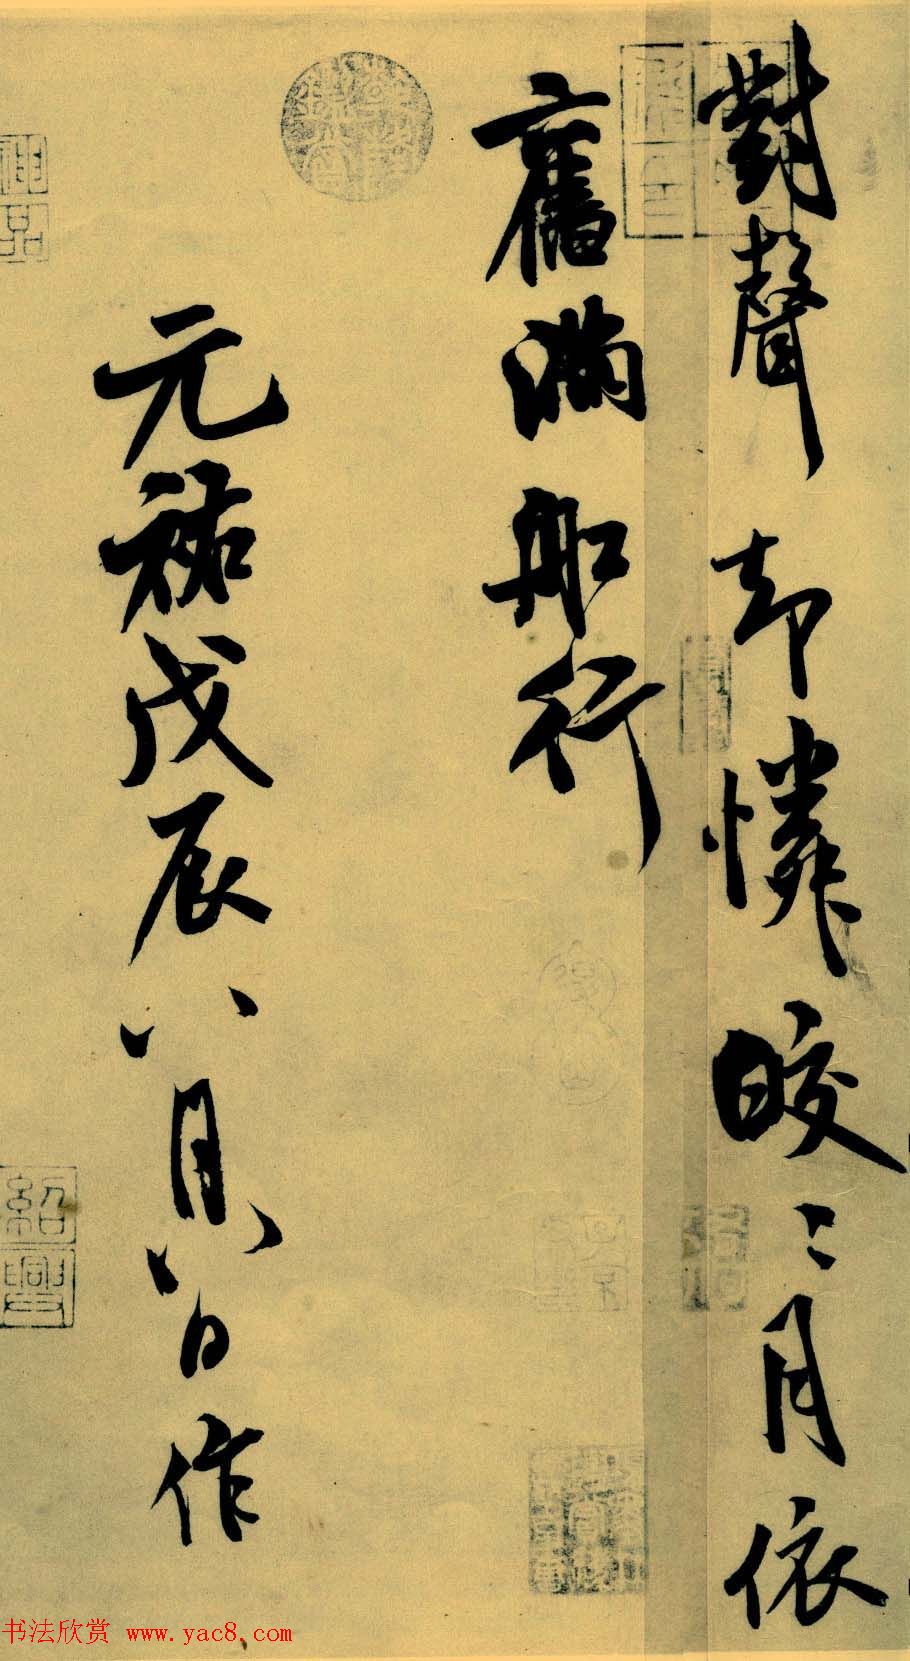 對聲却憐皎〻月依
舊滿船行
元祐戊辰八月八日作
神品
紹興
书法欣赏 www.yac8.com